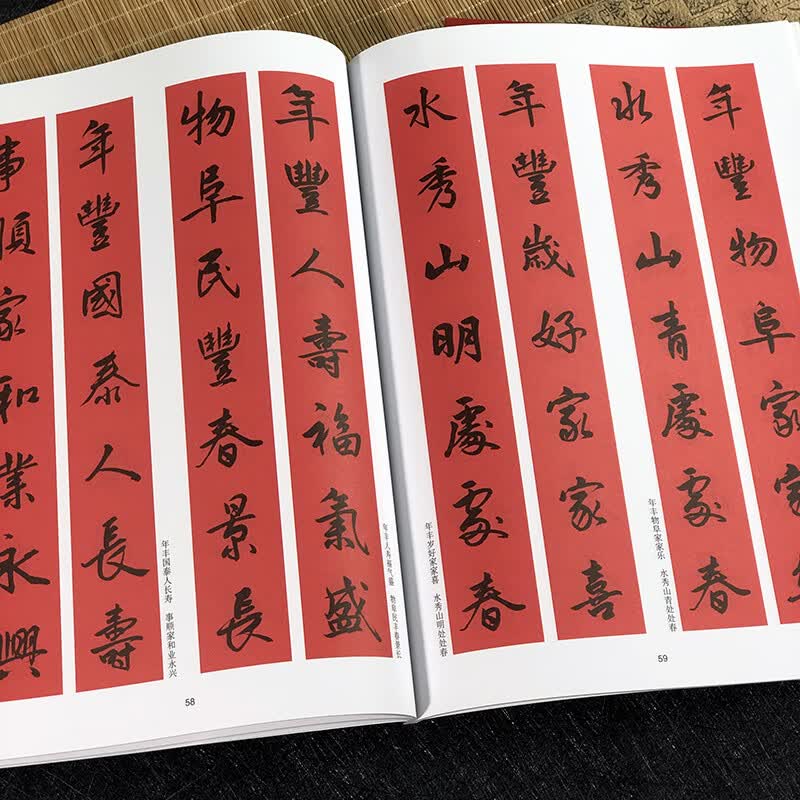 年豐人壽福氣盛
物阜民豐春景長
年丰人寿福气盛 物阜民丰春景长
年豐國泰人長壽
事順家和業永興
年丰国泰人长寿 事顺家和业永兴
58
年豐物阜家家
水秀山青處處春
年丰物阜家家乐 水秀山青处处春
年豐歲好家家喜
水秀山明處處春
年丰岁好家家喜 水秀山明处处春
59